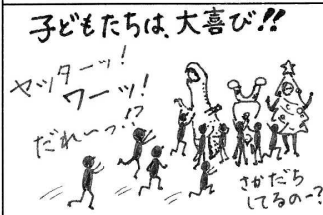 子どもたちは、大喜び!!
ヤッターッ!
ワーッ!
だれ〜っ!?
さかだち
してるの〜?